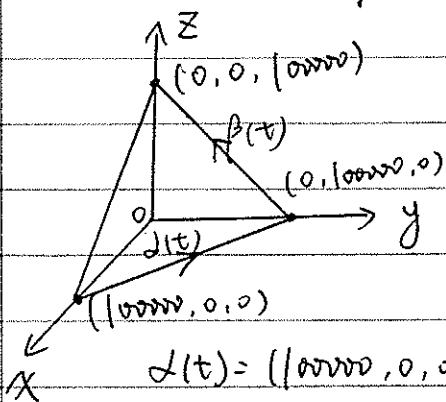 Z
(0, 0, 100000)
β(t)
(0, 100000, 0)
0
y
α(t)
(100000, 0, 0)
X
α(t) = (100000, 0, 0